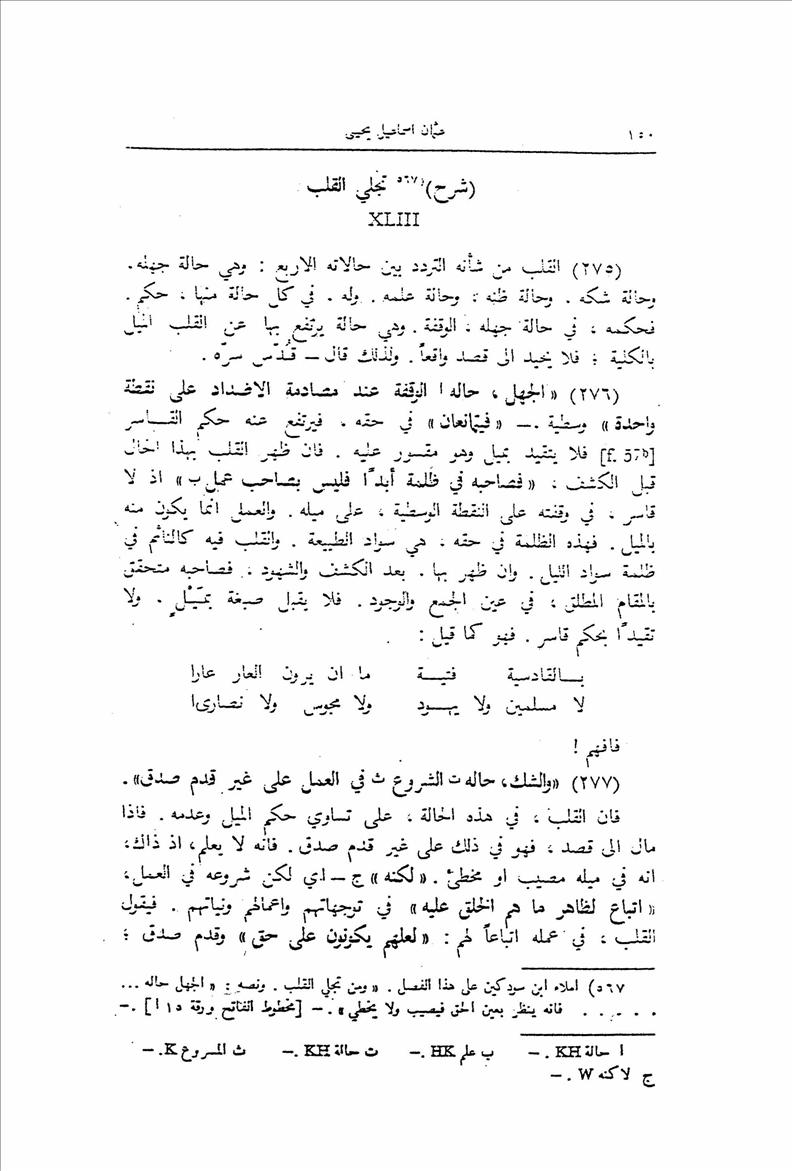 ١٥٠ عثمان اسماعيل يحيى
(شرح)٥٦٧ تجلي القلب
XLIII
(٢٧٥) القلب من شأنه التردد بين حالاته الاربع : وهي حالة جهله.
وحالة شكه . وحالة ظنه ؛ وحالة علمه . وله . في كل حالة منها ، حكم .
فحكمه ، في حالة جهله ، الوقفة . وهي حالة يرتفع بها عن القلب الميل
بالكلية ؛ فلا يحيد الى قصد واقعاً . ولذلك قال – قُدّس سرّه .
(٢٧٦) «الجهل ، حاله ا الوقفة عند مصادمة الاضداد على نقطة
واحدة» وسطية .– «فيتمانعان» في حقه . فيرتفع عنه حكم القـاسر
[f. 57b] فلا يتقيد بميل وهو مقسور عليه . فان ظهر القلب بهذا الحال
قبل الكشف ، «فصاحبه في ظلمة أبدًا فليس بصاحب عمل ب» اذ لا
قاسر ، في وقفته على النقطة الوسطية ، على ميله . والعمل انما يكون منه
بالميل . فهذه الظلمة في حقه ، هي سواد الطبيعة . والقلب فيه كالنائم في
ظلمة سواد الليل . وان ظهر بها . بعد الكشف والشهود ، فصاحبه متحقق
بالمقام المطلق ، في عين الجمع والوجود . فلا يقبل صبغة بمَيْلٍ . ولا
تقيدًا بحكم قاسر . فهو كما قيل :
بـالقادسية فتيـة ما ان يرون العار عارا
لا مسلمين ولا يهـود ولا مجوس ولا نصارى!
فافهم !
(٢٧٧) «والشك، حاله ت الشروع ث في العمل على غير قدم صدق» .
فان القلب ، في هذه الحالة ، على تساوي حكم الميل وعدمه . فاذا
مال الى قصد ، فهو في ذلك على غير قدم صدق . فانه لا يعلم، اذ ذاك،
انه في ميله مصيب او مخطئ . «لكنه» ج – اي لكن شروعه في العمل،
«اتباع لظاهر ما هم الخلق عليه» في توجهاتهم واعمالهم ونياتهم . فيقول
القلب ، في عمله اتباعاً لهم : «لعلهم يكونون على حق» وقدم صدق ؛
٥٦٧) املاء ابن سودكين على هذا الفصل . «ومن تجلي القلب . ونصه : «الجهل حاله ...
. . . . . فانه ينظر بعين الحق فيصيب ولا يخطي» .– [مخطوط الفاتح ورقة ١٥ ا] .–
ا حالة KH .– ب علم HK .– ت حالة KH .– ث المسروع K .–
ج لاكنه W .–